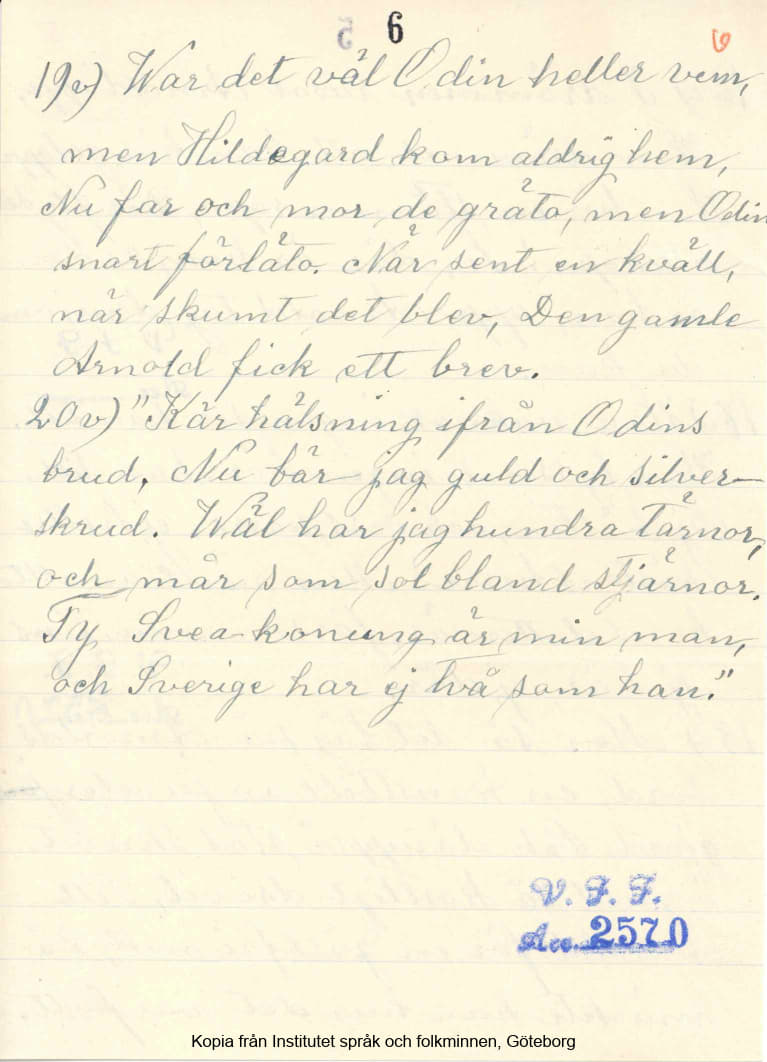 5 6 6
19v) War det väl Odin heller vem,
men Hildegard kom aldrig hem,
Nu far och mor de gråto, men Odin
snart förlåto. När sent en kväll,
när skumt det blev, Den gamle
Arnold fick ett brev.
20v) "Kär hälsning ifrån Odins
brud, Nu bär jag guld och silver-
skrud. Wäl har jag hundra tärnor,
och mår som sol bland stjärnor.
Ty Svea-konung är min man,
och Sverige har ej två som han."
V. F. F.
Acc. 2570
Kopia från Institutet språk och folkminnen, Göteborg